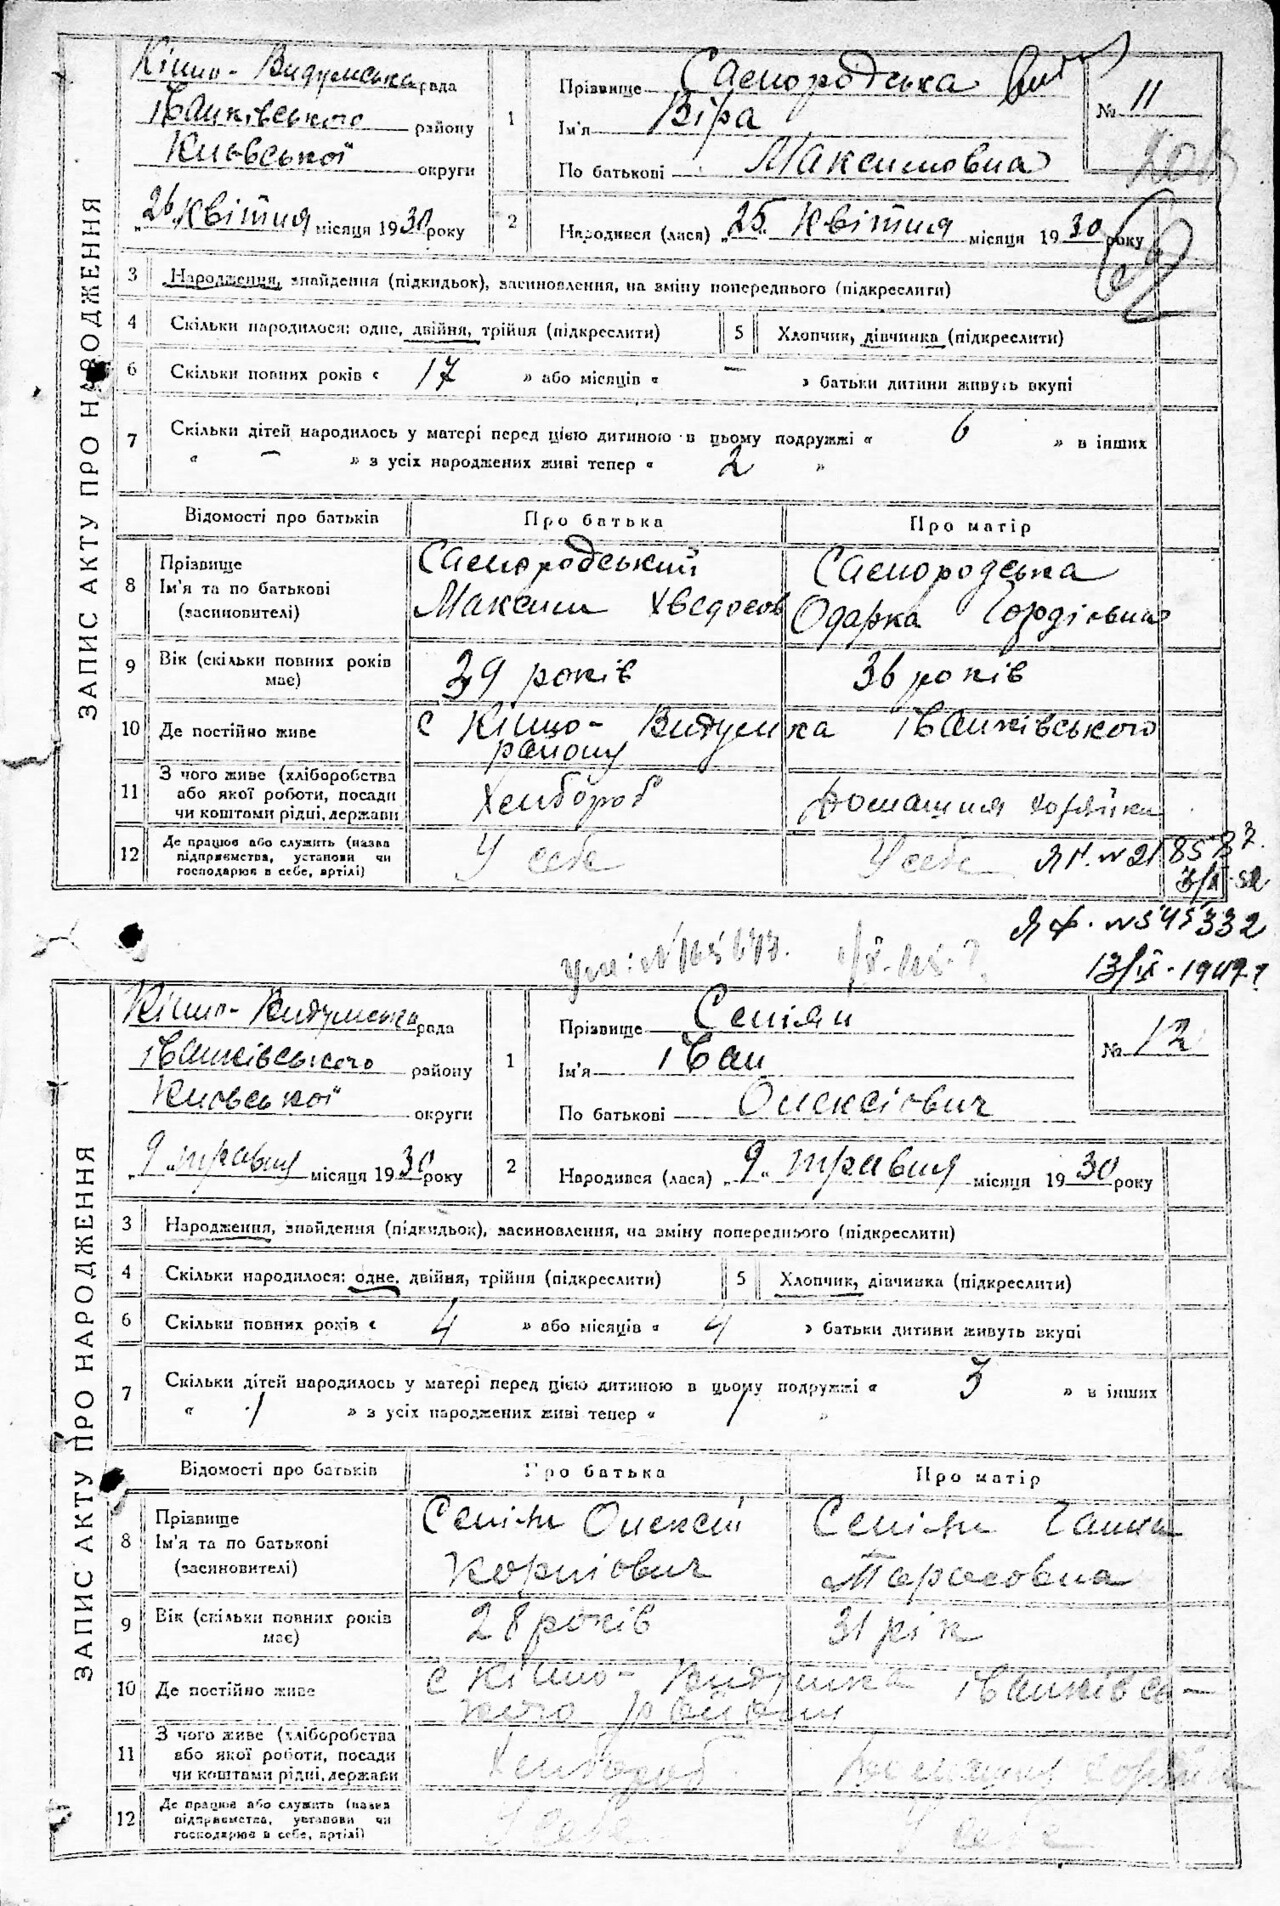 ЗАПИС АКТУ ПРО НАРОДЖЕННЯ
Кіцмо-Видумська рада
Іванківського району
Київської округи
„26„ квітня місяця 1930 року
1
Прізвище Саснородська
Ім'я Віра
По батькові Максимовна
№ 11
2
Народився (лася) „25„ квітня місяця 1930 року
3 Народження, знайдення (підкидьок), засиновлення, на зміну попереднього (підкреслити)
4 Скільки народилося: одне, двійня, трійня (підкреслити)
5 Хлопчик, дівчинка (підкреслити)
6 Скільки повних років « 17 » або місяців « — » батьки дитини живуть вкупі
7 Скільки дітей народилось у матері перед цією дитиною в цьому подружжі « 6 » в інших
« — » з усіх народжених живі тепер « 2 »
Відомості про батьків Про батька Про матір
8 Прізвище
Ім'я та по батькові
(засиновителі)
Саснородський
Максим Хведосов
Саснородська
Одарка Гордіовна
9 Вік (скільки повних років має) 39 років 36 років
10 Де постійно живе с Кіцмо-Видумка Іванківського
району
11 З чого живе (хліборобства
або якої роботи, посади
чи коштами рідні, держави
Хлібороб Домашня хазяйка
12 Де працює або служить (назва
підприємства, установи чи
господарює в себе, артілі)
У себе У себе
ЯФ. №545332
13/IX-1947 г
ЗАПИС АКТУ ПРО НАРОДЖЕННЯ
Кіцмо-Видумська рада
Іванківського району
Київської округи
„9„ травня місяця 1930 року
1
Прізвище Сеніян
Ім'я Іван
По батькові Олексіович
№ 12
2
Народився (лася) „9„ травня місяця 1930 року
3 Народження, знайдення (підкидьок), засиновлення, на зміну попереднього (підкреслити)
4 Скільки народилося: одне, двійня, трійня (підкреслити)
5 Хлопчик, дівчинка (підкреслити)
6 Скільки повних років « 4 » або місяців « 4 » батьки дитини живуть вкупі
7 Скільки дітей народилось у матері перед цією дитиною в цьому подружжі « 3 » в інших
« 1 » з усіх народжених живі тепер « 1 »
Відомості про батьків Про батька Про матір
8 Прізвище
Ім'я та по батькові
(засиновителі)
Сеніян Олексій
Корніович
Сеніян Ганна
Тарасовна
9 Вік (скільки повних років має) 28 років 31 рік
10 Де постійно живе с Кіцмо-Видумка Іванківсь-
кого району
11 З чого живе (хліборобства
або якої роботи, посади
чи коштами рідні, держави
Хлібороб Домашня хазяйка
12 Де працює або служить (назва
підприємства, установи чи
господарює в себе, артілі)
У себе У себе